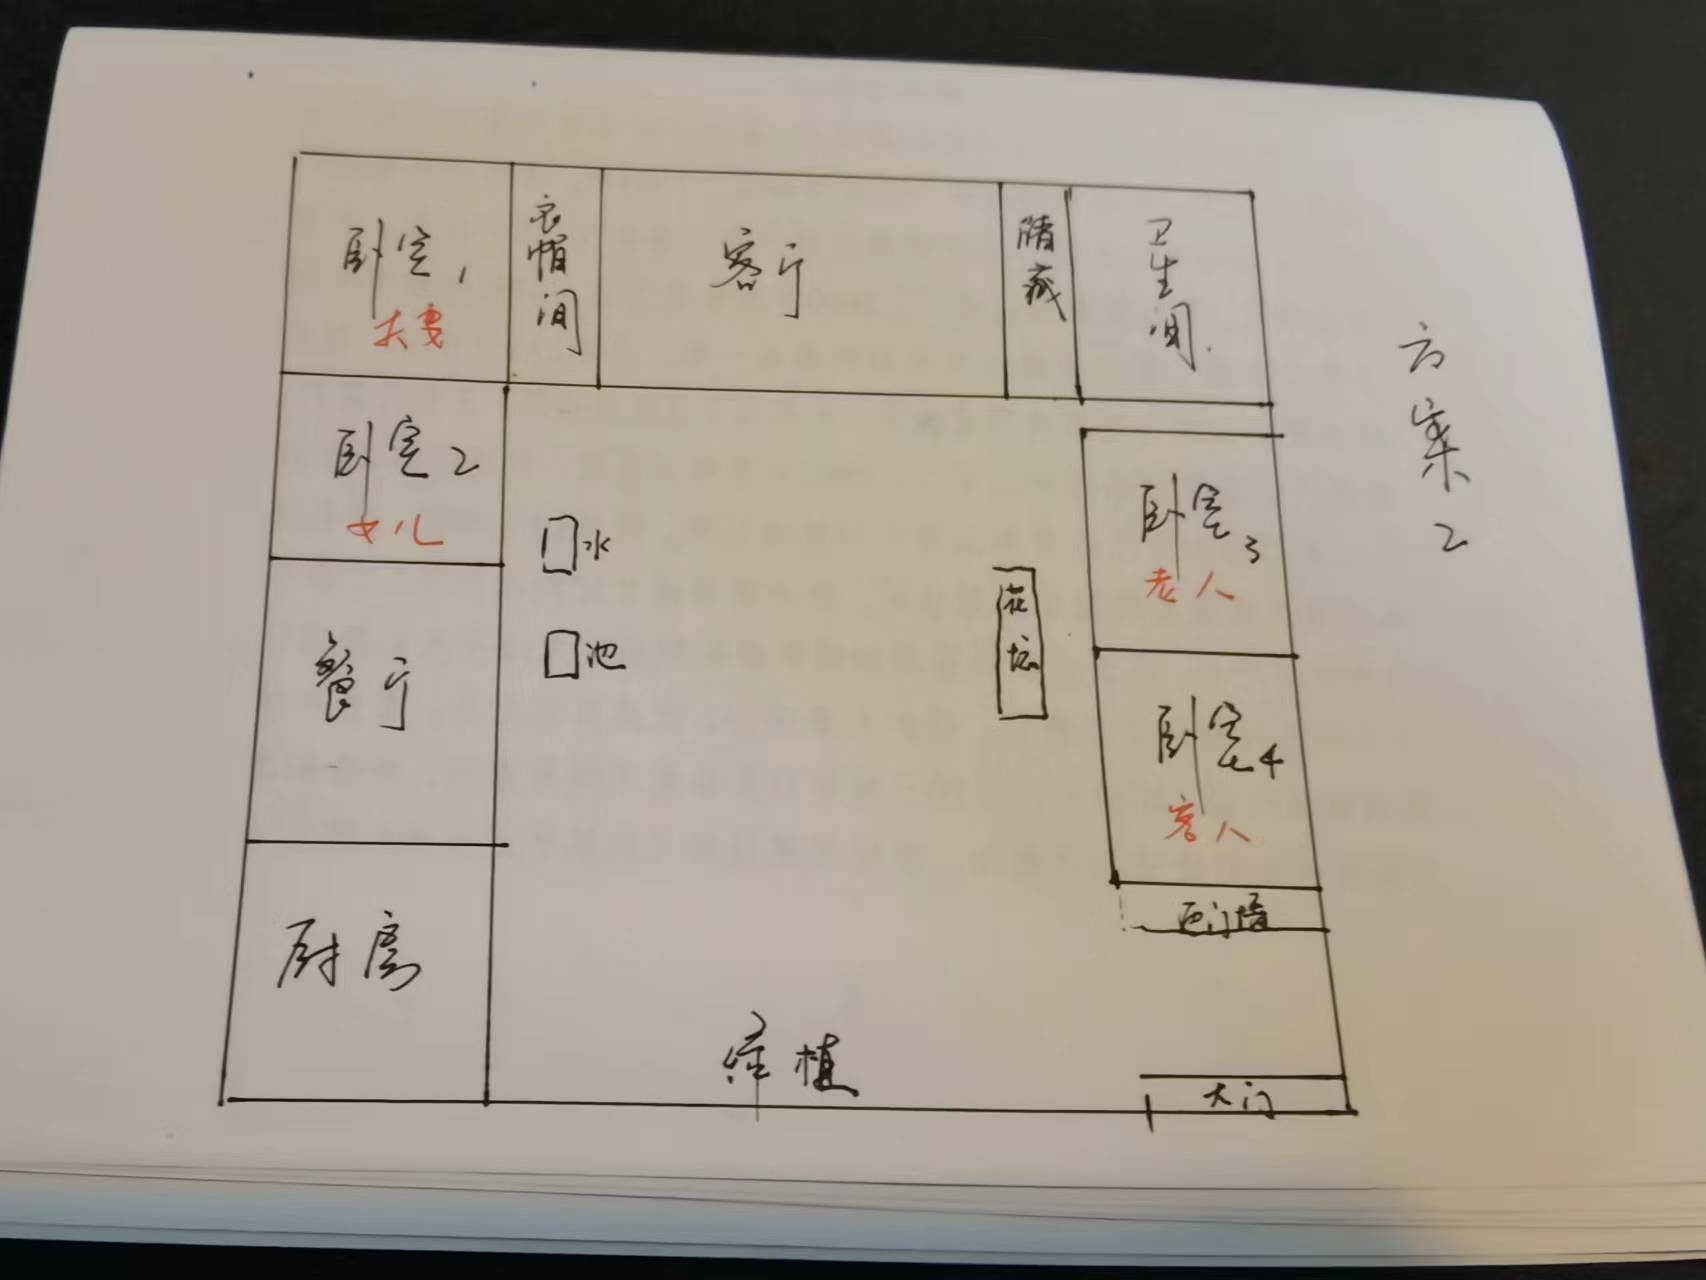 卧室1
夫妻
衣帽间
客厅
储藏
卫生间
方案2
卧室2
女儿
水
池
花坛
卧室3
老人
餐厅
卧室4
客人
厨房
绿植
大门